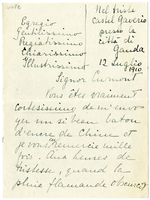 Nel triste
castel Gaverio
presso la
città di
Ganda
12 Luglio
1910
Egregio
Gentilissimo
Pregiatissimo
Chiarissimo
Illustrissimo
Signor Cumont
Vous êtes vraiment
cortesissimo de m'envo
yer un si beau bâton
d'encre de Chine et
je vous remercie mille
fois. Aux heures de
tristesse, quand la
pluie flamande